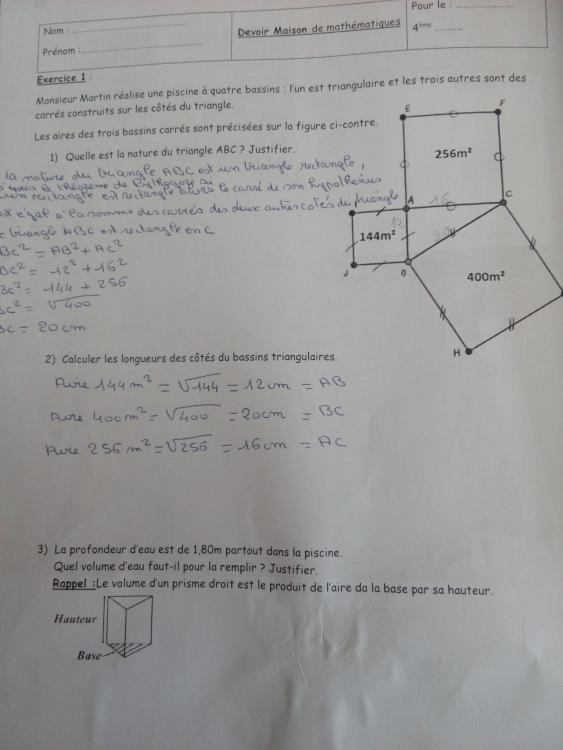 Nom :
Prénom :
Devoir Maison de mathématiques
Pour le :
4ème
Exercice 1 :
Monsieur Martin réalise une piscine à quatre bassins : l'un est triangulaire et les trois autres sont des
carrés construits sur les côtés du triangle.
Les aires des trois bassins carrés sont précisées sur la figure ci-contre.
1) Quelle est la nature du triangle ABC ? Justifier.
la nature du triangle ABC est un triangle rectangle,
si
rectangle est rectangle alors le carré de son hypothénus
égal à la somme des carrés des deux autres cotés du triangle
triangle ABC est rectangle en C
BC² = AB² + AC²
BC² = 12² + 16²
BC² = 144 + 256
BC² = √400
BC = 20 cm
E
F
256m²
A
16
C
12
144m²
J
B
400m²
H
2) Calculer les longueurs des côtés du bassins triangulaires.
Aire 144 m² = √144 = 12 cm = AB
Aire 400 m² = √400 = 20 cm = BC
Aire 256 m² = √256 = 16 cm = AC
3) La profondeur d'eau est de 1,80m partout dans la piscine.
Quel volume d'eau faut-il pour la remplir ? Justifier.
Rappel :Le volume d'un prisme droit est le produit de l'aire da la base par sa hauteur.
Hauteur
Base